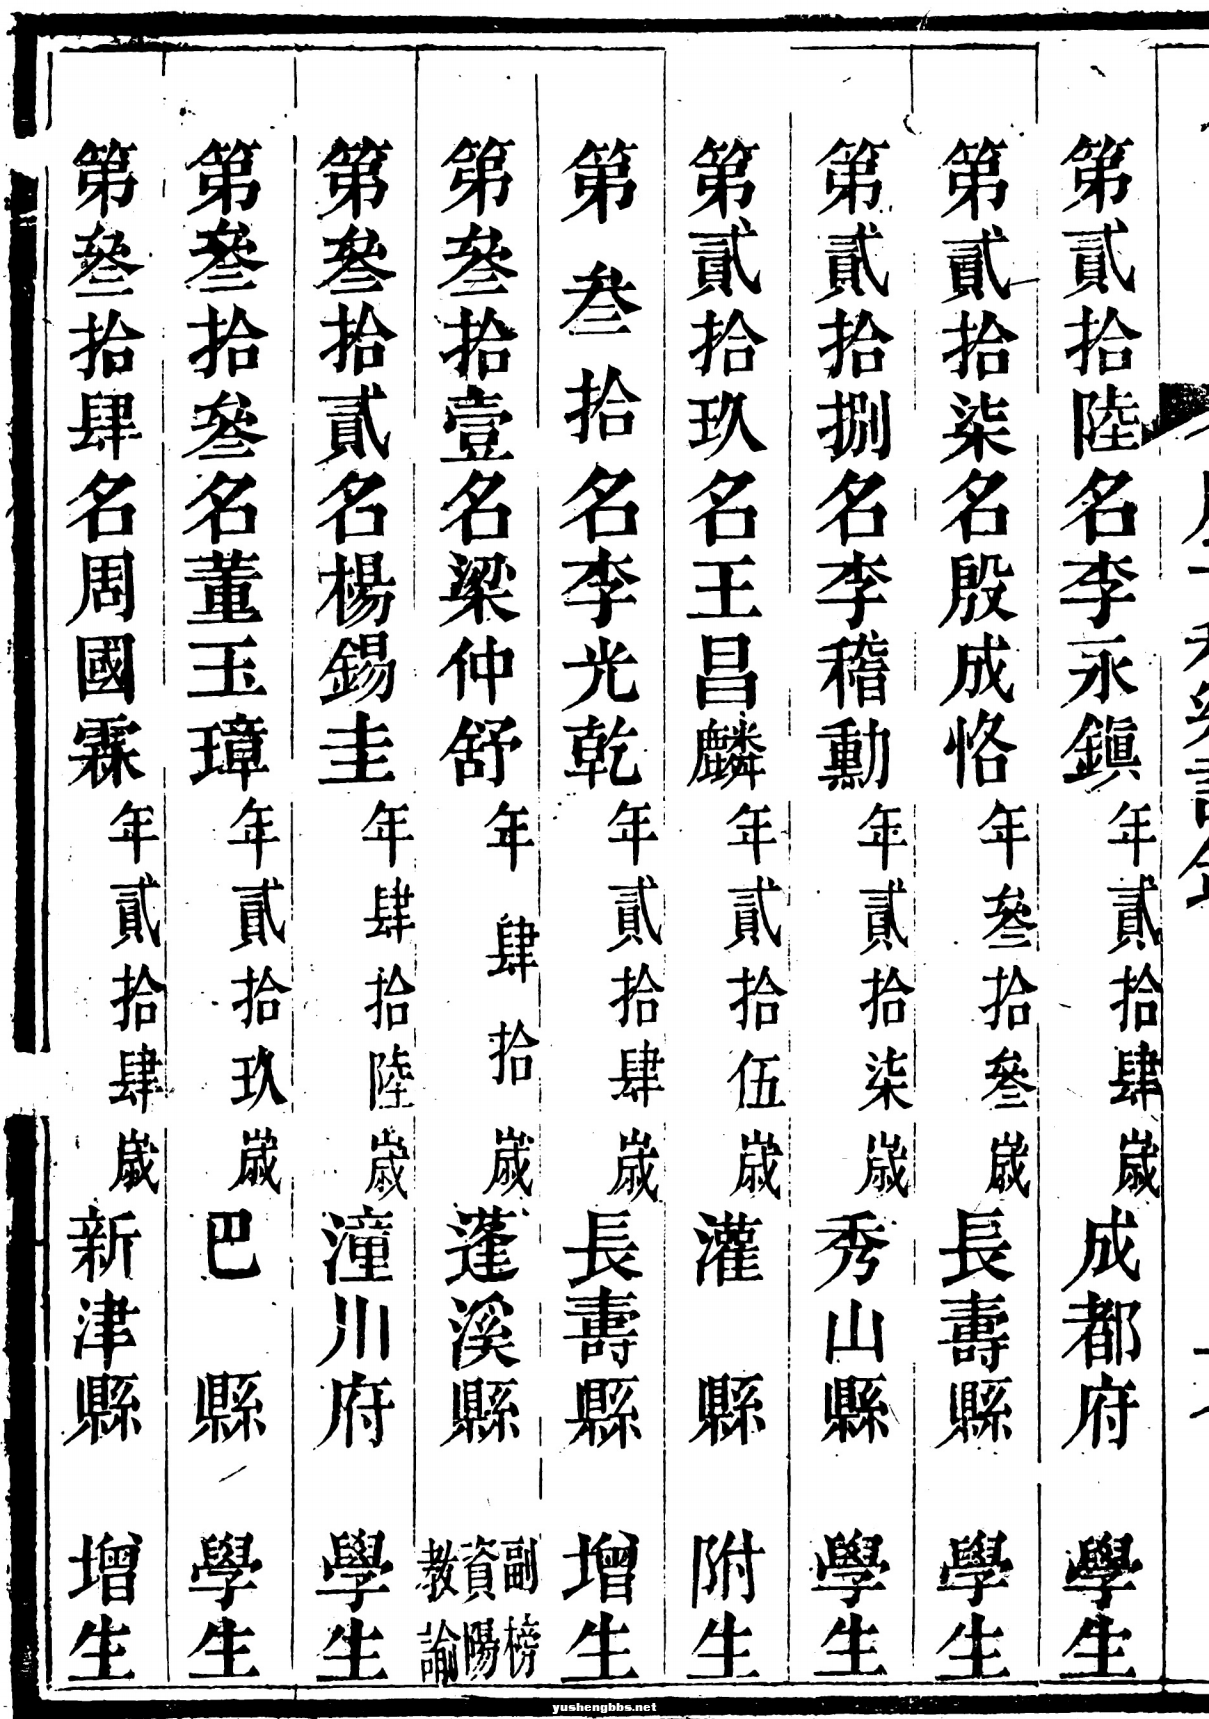 第貳拾陸名李永鎭年貳拾肆歲成都府學生
第貳拾柒名殷成恪年叄拾叄歲長壽縣學生
第貳拾捌名李稽勳年貳拾柒歲秀山縣學生
第貳拾玖名王昌麟年貳拾伍歲灌縣附生
第叁拾名李光乾年貳拾肆歲長壽縣增生
第叄拾壹名梁仲舒年肆拾歲蓬溪縣副榜資陽教諭
第叄拾貳名楊錫圭年肆拾陸歲潼川府學生
第叄拾叄名董玉璋年貳拾玖歲巴縣學生
第叄拾肆名周國霖年貳拾肆歲新津縣增生
yushengbbs.net